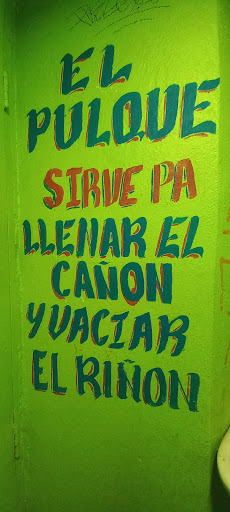 EL
PULQUE
SIRVE PA
LLENAR EL
CAÑON
Y VACIAR
EL RIÑON